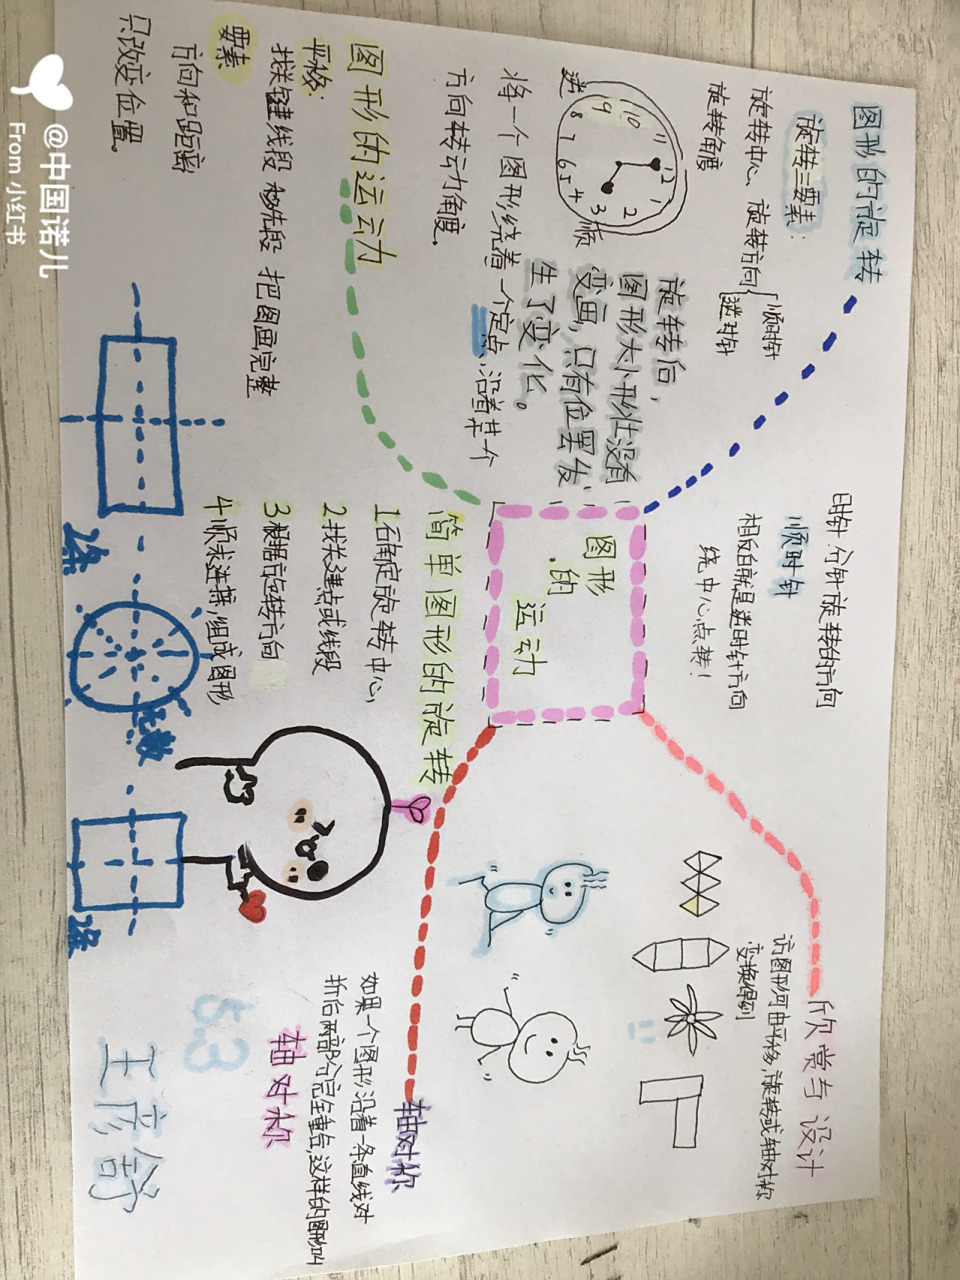 图形的旋转
旋转三要素：
旋转中心、旋转方向{顺时针
逆时针
旋转角度
逆
顺
10
11
12
1
2
3
4
5
6
7
8
9
将一个图形绕着一个定点、沿着某个
方向转动角度。
旋转后，
图形大小形状没有
变画，只有位置发
生了变化。
时针分针旋转的方向
顺时针
相反的就是逆时针方向
绕中心点转！
图形
的
运动
图形的运动
平移：
找关键线段 移先段 把图画完整
要素
方向和距离
只改变位置。
简单图形的旋转
1石角定旋转中心，
2找关建点或线段
3根据旋转方向
4顺求连接，组成图形
欣赏与设计
访图形何由平移，旋转或轴对称
变换得到
轴对称
如果一个图形沿着一条直线对
折后两部分完全重合，这样的图形叫
轴对称
无数
5.3
王彦舒
@中国诺儿
From 小红书